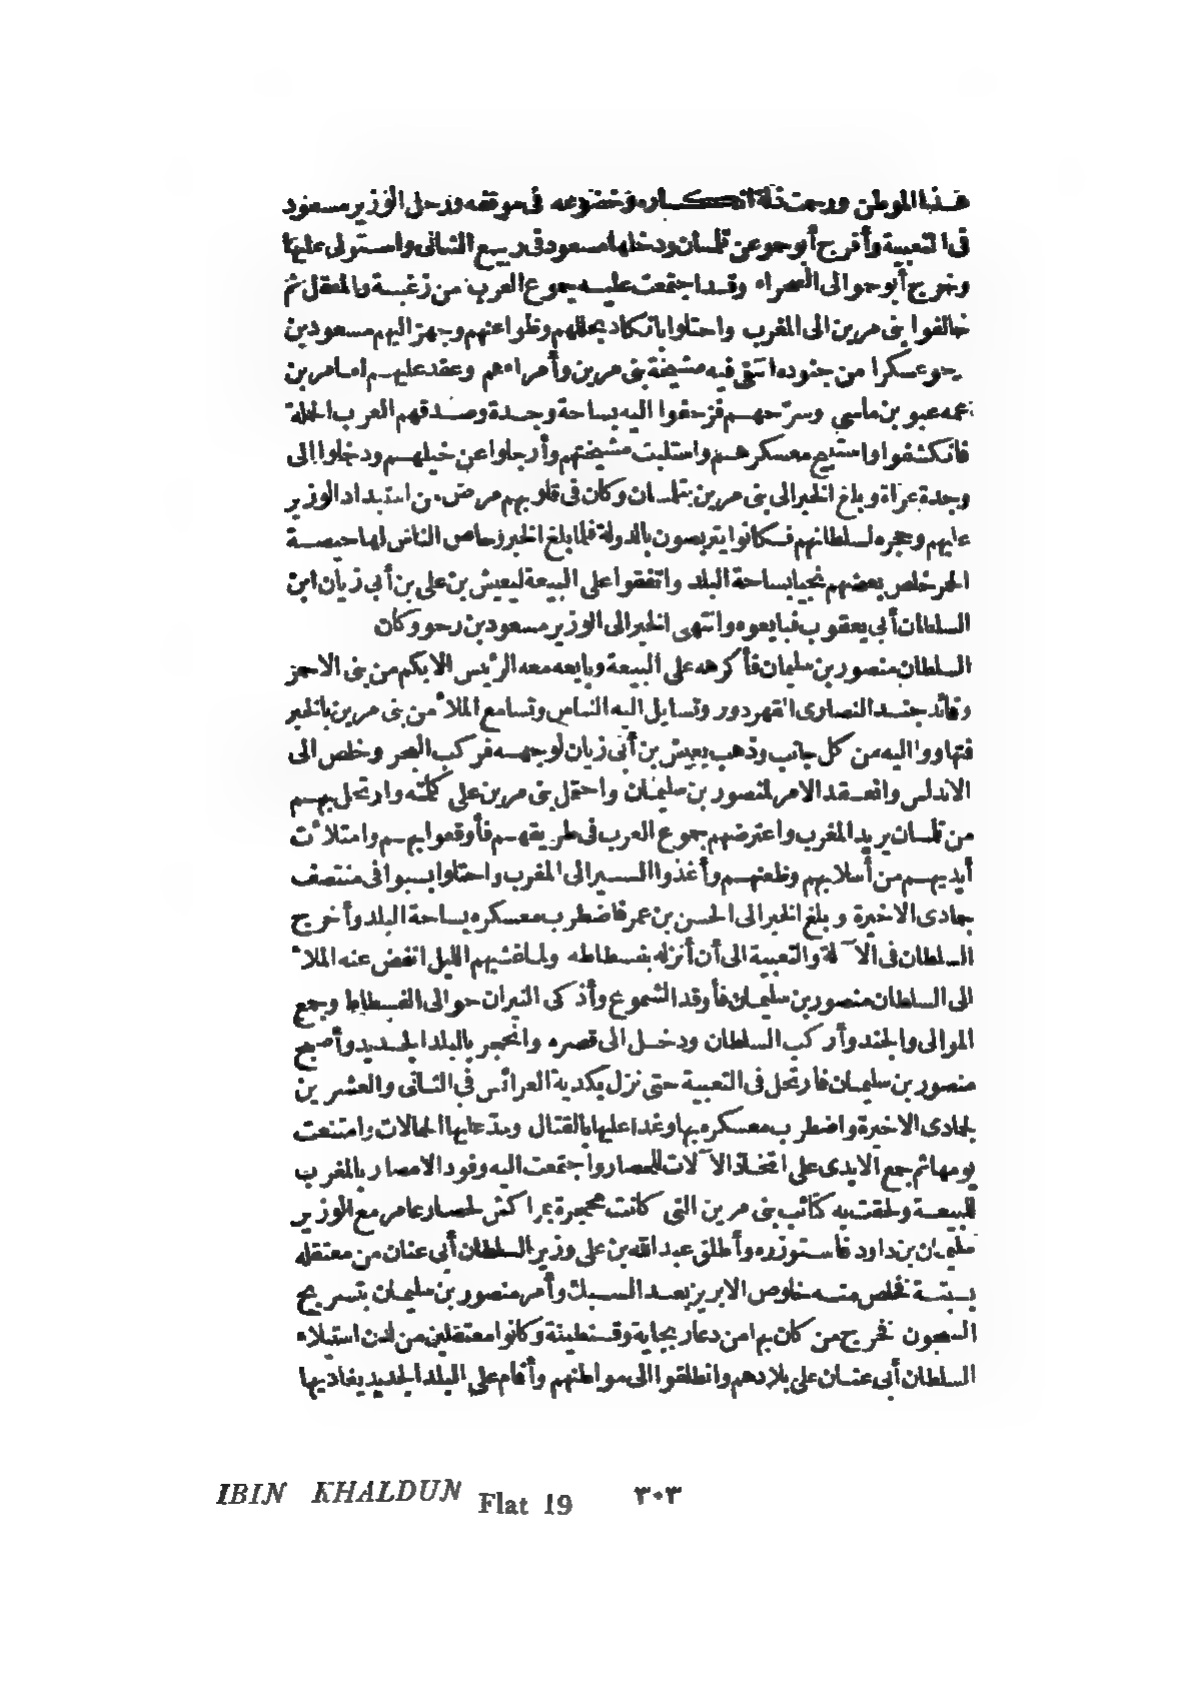 هذا الموطن ورجعت ذلة انكساره وخضوعه فى موقفه ورحل الوزير مسعود
فى التعبية وأفرج أبو حمو عن تلمسان ودخلها مسعود فى ربيع الثانى واستولى عليها
وخرج أبو حمو الى الصحراء وقد اجتمعت عليه جموع العرب من زغبة والمعقل ثم
خالفوا بنى مرين الى المغرب واحتلوا بانكاد بحللهم وظواعنهم وجهز اليهم مسعود بن
رحو عسكرا من جنوده انتقى فيه مشيخة بنى مرين وأمراءهم وعقد عليهم لعامر بن
عمه عبو بن ماسى وسرّحهم فزحفوا اليه بساحة وجدة وصدقهم العرب الحملة
فانكشفوا واستبيح معسكرهم واستلبت مشيختهم وأرجلوا عن خيلهم ودخلوا الى
وجدة عراة وبلغ الخبر الى بنى مرين بتلمسان وكان فى قلوبهم مرض من استبداد الوزير
عليهم وحجره لسلطانهم فكانوا يتربصون بالدولة فلما بلغ الخبر وحاص الناس لها حيصة
الحمر خلص بعضهم نجيا بساحة البلد واتفقوا على البيعة ليعيش بن على بن أبى زيان ابن
السلطان أبى يعقوب فبايعوه وانتهى الخبر الى الوزير مسعود بن رحو وكان
السلطان منصور بن سليمان فأكرهه على البيعة وبايعه معه الرئيس الابكم من بنى الاحمر
وقائد جند النصارى القهردور وتسايل اليه الناس وتسامع الملأ من بنى مرين بالخبر
فتهاووا اليه من كل جانب وذهب يعيش بن أبى زيان لوجهه فركب البحر وخلص الى
الاندلس وانعقد الامر لمنصور بن سليمان واحتمل بنى مرين على كلمته وارتحل بهم
من تلمسان يريد المغرب واعترضهم جموع العرب فى طريقهم فأوقعوا بهم وامتلأت
أيديهم من أسلابهم وظعنهم وأغذوا السير الى المغرب واحتلوا بسبوا فى منتصف
جمادى الاخيرة وبلغ الخبر الى الحسن بن عمر فاضطرب معسكره بساحة البلد وأخرج
السلطان فى الآلة والتعبية الى أن أنزله بفسطاطه ولما غشيهم الليل انفض عنه الملأ
الى السلطان منصور بن سليمان فأوقد الشموع وأذكى النيران حوالى الفسطاط وجمع
الموالى والجند وأركب السلطان ودخل الى قصره وانحجر بالبلد الجديد وأصبح
منصور بن سليمان فارتحل فى التعبية حتى نزل بكدية العرائس فى الثانى والعشرين
لجمادى الاخيرة واضطرب معسكره بها وغدا عليها بالقتال وشدّ عليها الحملات وامتنعت
يومها ثم جمع الايدى على اتخاذ الآلات للحصار واجتمعت اليه وفود الامصار بالمغرب
للبيعة ولحقت به كتائب بنى مرين التى كانت مجمرة بمراكش لحصار عامر مع الوزير
سليمان بن داود فاستوزره وأطلق عبد الله بن على وزير السلطان أبى عنان من معتقله
بسبتة فخلص منه خلوص الابريز بعد السبك وأمر منصور بن سليمان بتسريح
السجون فخرج من كان بها من دعار بجاية وقسنطينة وكانوا معتقلين من لدن استيلاء
السلطان أبى عنان على بلادهم وانطلقوا الى مواطنهم وأقام على البلد الجديد يغاديها
IBIN KHALDUN Flat 19 ٣٠٣